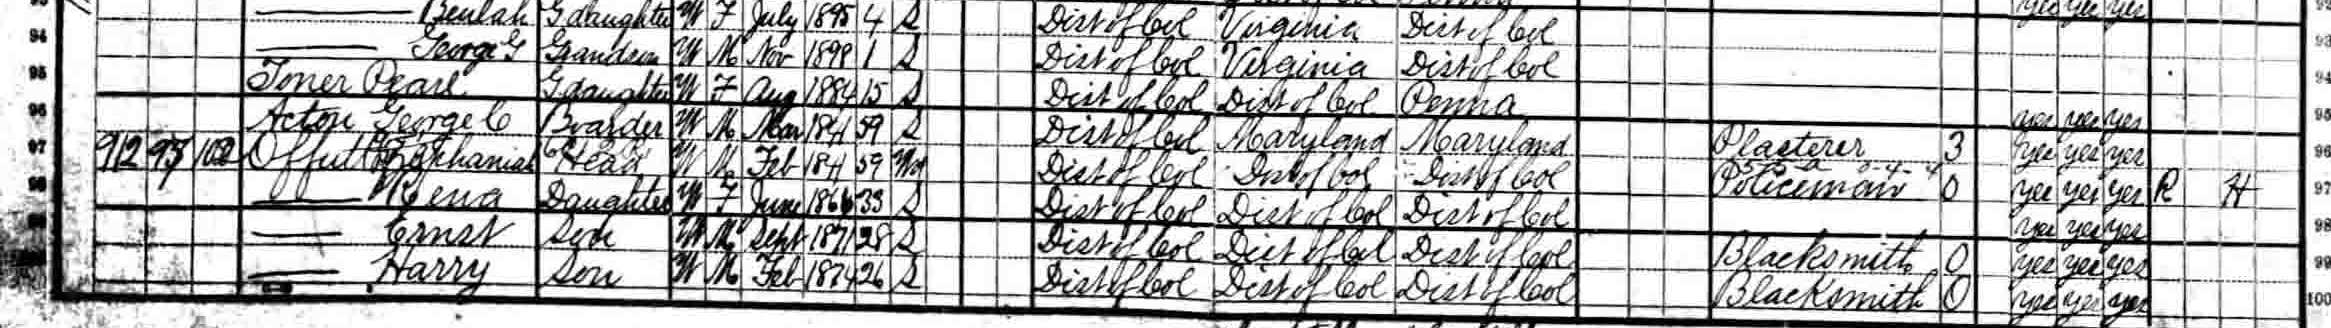 Beulah Gdaughter W F July 1895 4 S Dist of Col Virginia Dist of Col yes yes yes
94 George G Grandson W M Nov 1898 1 S Dist of Col Virginia Dist of Col 93
95 Toner Pearl Gdaughter W F Aug 1884 15 S Dist of Col Dist of Col Penna yes yes yes 94
96 Acton George C Boarder W M Mar 1841 59 S Dist of Col Maryland Maryland Plasterer 3 yes yes yes 95
97 912 97 102 Offutt Zephaniah Head W M Feb 1841 59 Wd Dist of Col Dist of Col Dist of Col Policeman 0 yes yes yes R H 97
98 Rena Daughter W F June 1866 33 S Dist of Col Dist of Col Dist of Col yes yes yes 98
99 Ernst Son W M Sept 1871 28 S Dist of Col Dist of Col Dist of Col Blacksmith 0 yes yes yes 99
Harry Son W M Feb 1874 26 S Dist of Col Dist of Col Dist of Col Blacksmith 0 yes yes yes 100